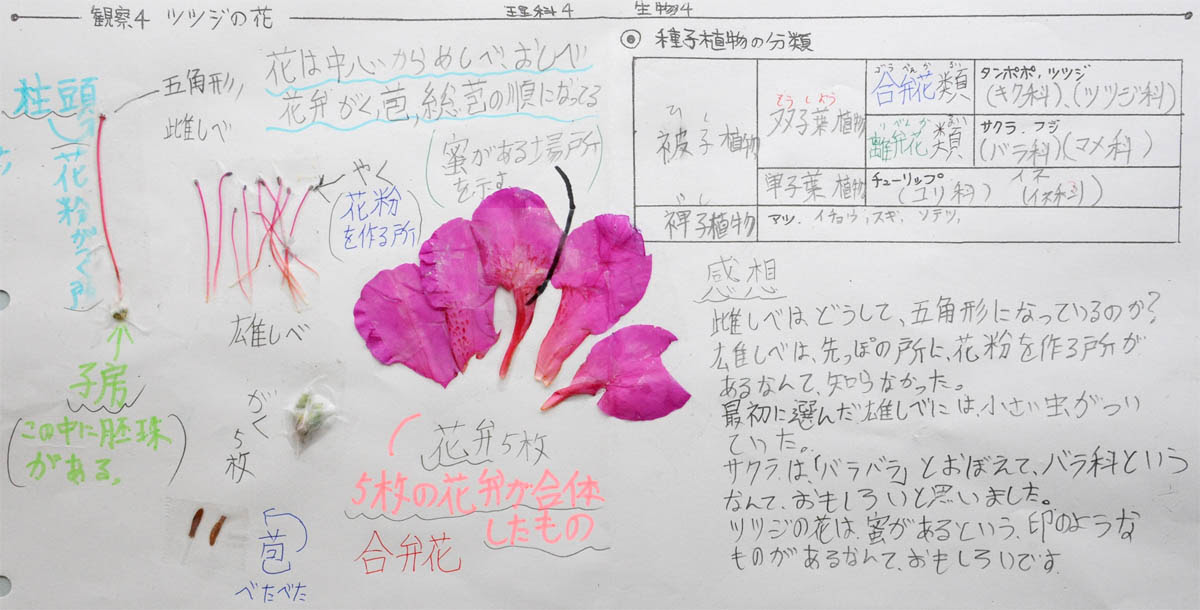 観察4 ツツジの花
理科4
生物4
花は中心からめしべ、おしべ
花弁がく,苞,総苞の順になってる
五角形,
雌しべ
柱頭
花粉がつく所
やく
(花粉
を作る所)
(蜜がある場所
を示す)
雄しべ
子房
(この中に胚珠
がある。)
がく
5枚
苞
べたべた
花弁5枚
5枚の花弁が合体
したもの
合弁花
◎ 種子植物の分類
ひ し
被子植物
そうしよう
双子葉植物
ごうべんか るい
合弁花類
タンポポ,ツツジ
(キク科)、(ツツジ科)
りべんか るい
離弁花類
サクラ.フジ
(バラ科)(マメ科)
単子葉植物
チューリップ イネ
(ユリ科) (イネ科)
し
裨子植物
マツ.イチョウ,スギ.ソテツ,
感想
雌しべは、どうして、五角形になっているのか?
雄しべは、先っぽの所に、花粉を作る所が
あるなんて、知らなかった。
最初に選んだ雄しべには、小さい虫がつい
ていた。
サクラは、「バラバラ」とおぼえて、バラ科という
なんて、おもしろいと思いました。
ツツジの花は、蜜があるという、印のような
ものがあるなんて、おもしろいです.